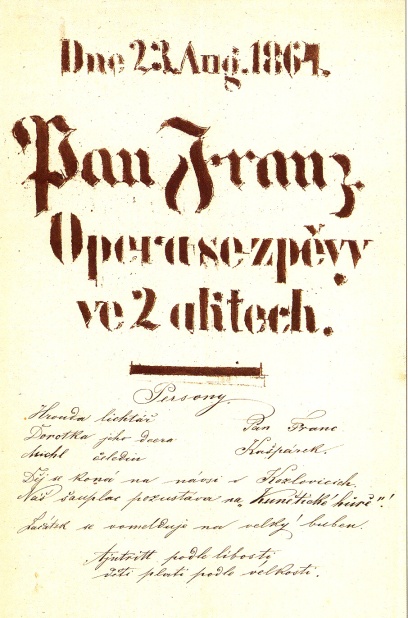 Dne 23. Aug. 1864.
Pan Franz.
Opera se zpěvy
ve 2 aktech.
Persony.
Hrouda lichtář Pan Franc
Dorotka jeho dcera Kašpárek.
Michl čeledín
Děj se koná na návsi v Kozlovicích.
Náš šauplac pozustává na „Kunětické hůře“!
Začátek se vomelduje na velký buben.
Ajntritt podle libosti,
děti platí podle velkosti.